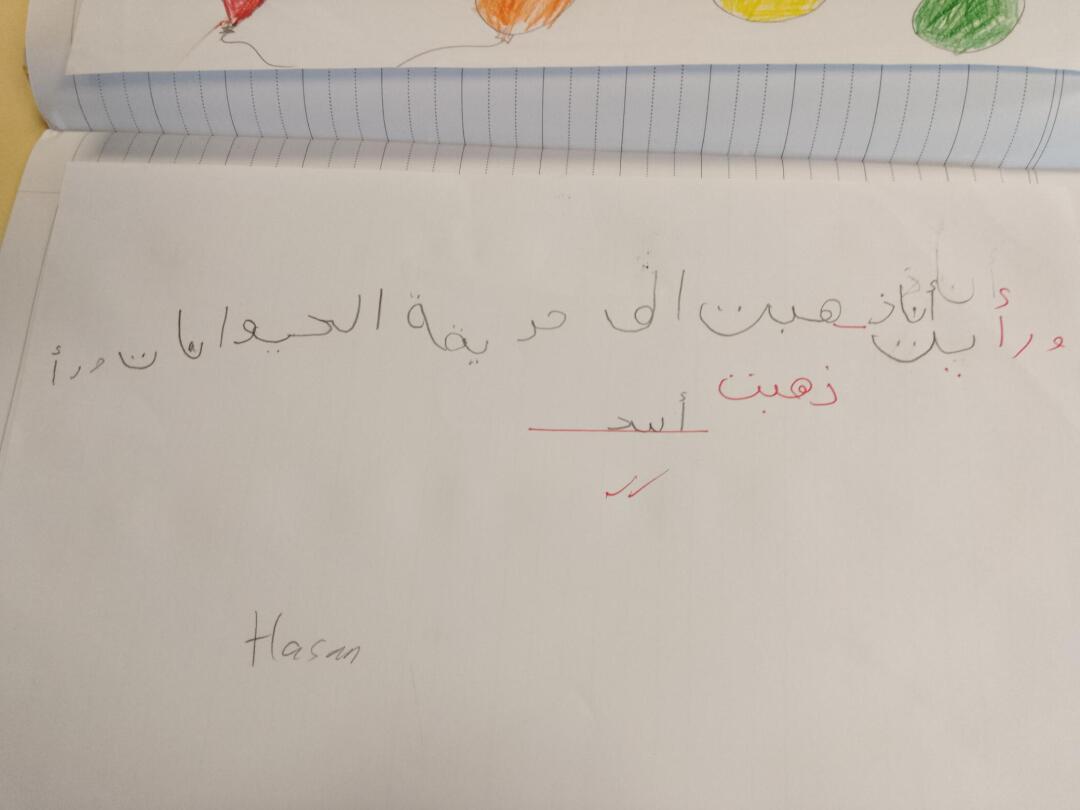 أنا ذهبت الى حديقة الحيوانات ورأ
ورأ يت
ذهبت
أسد
Hasan